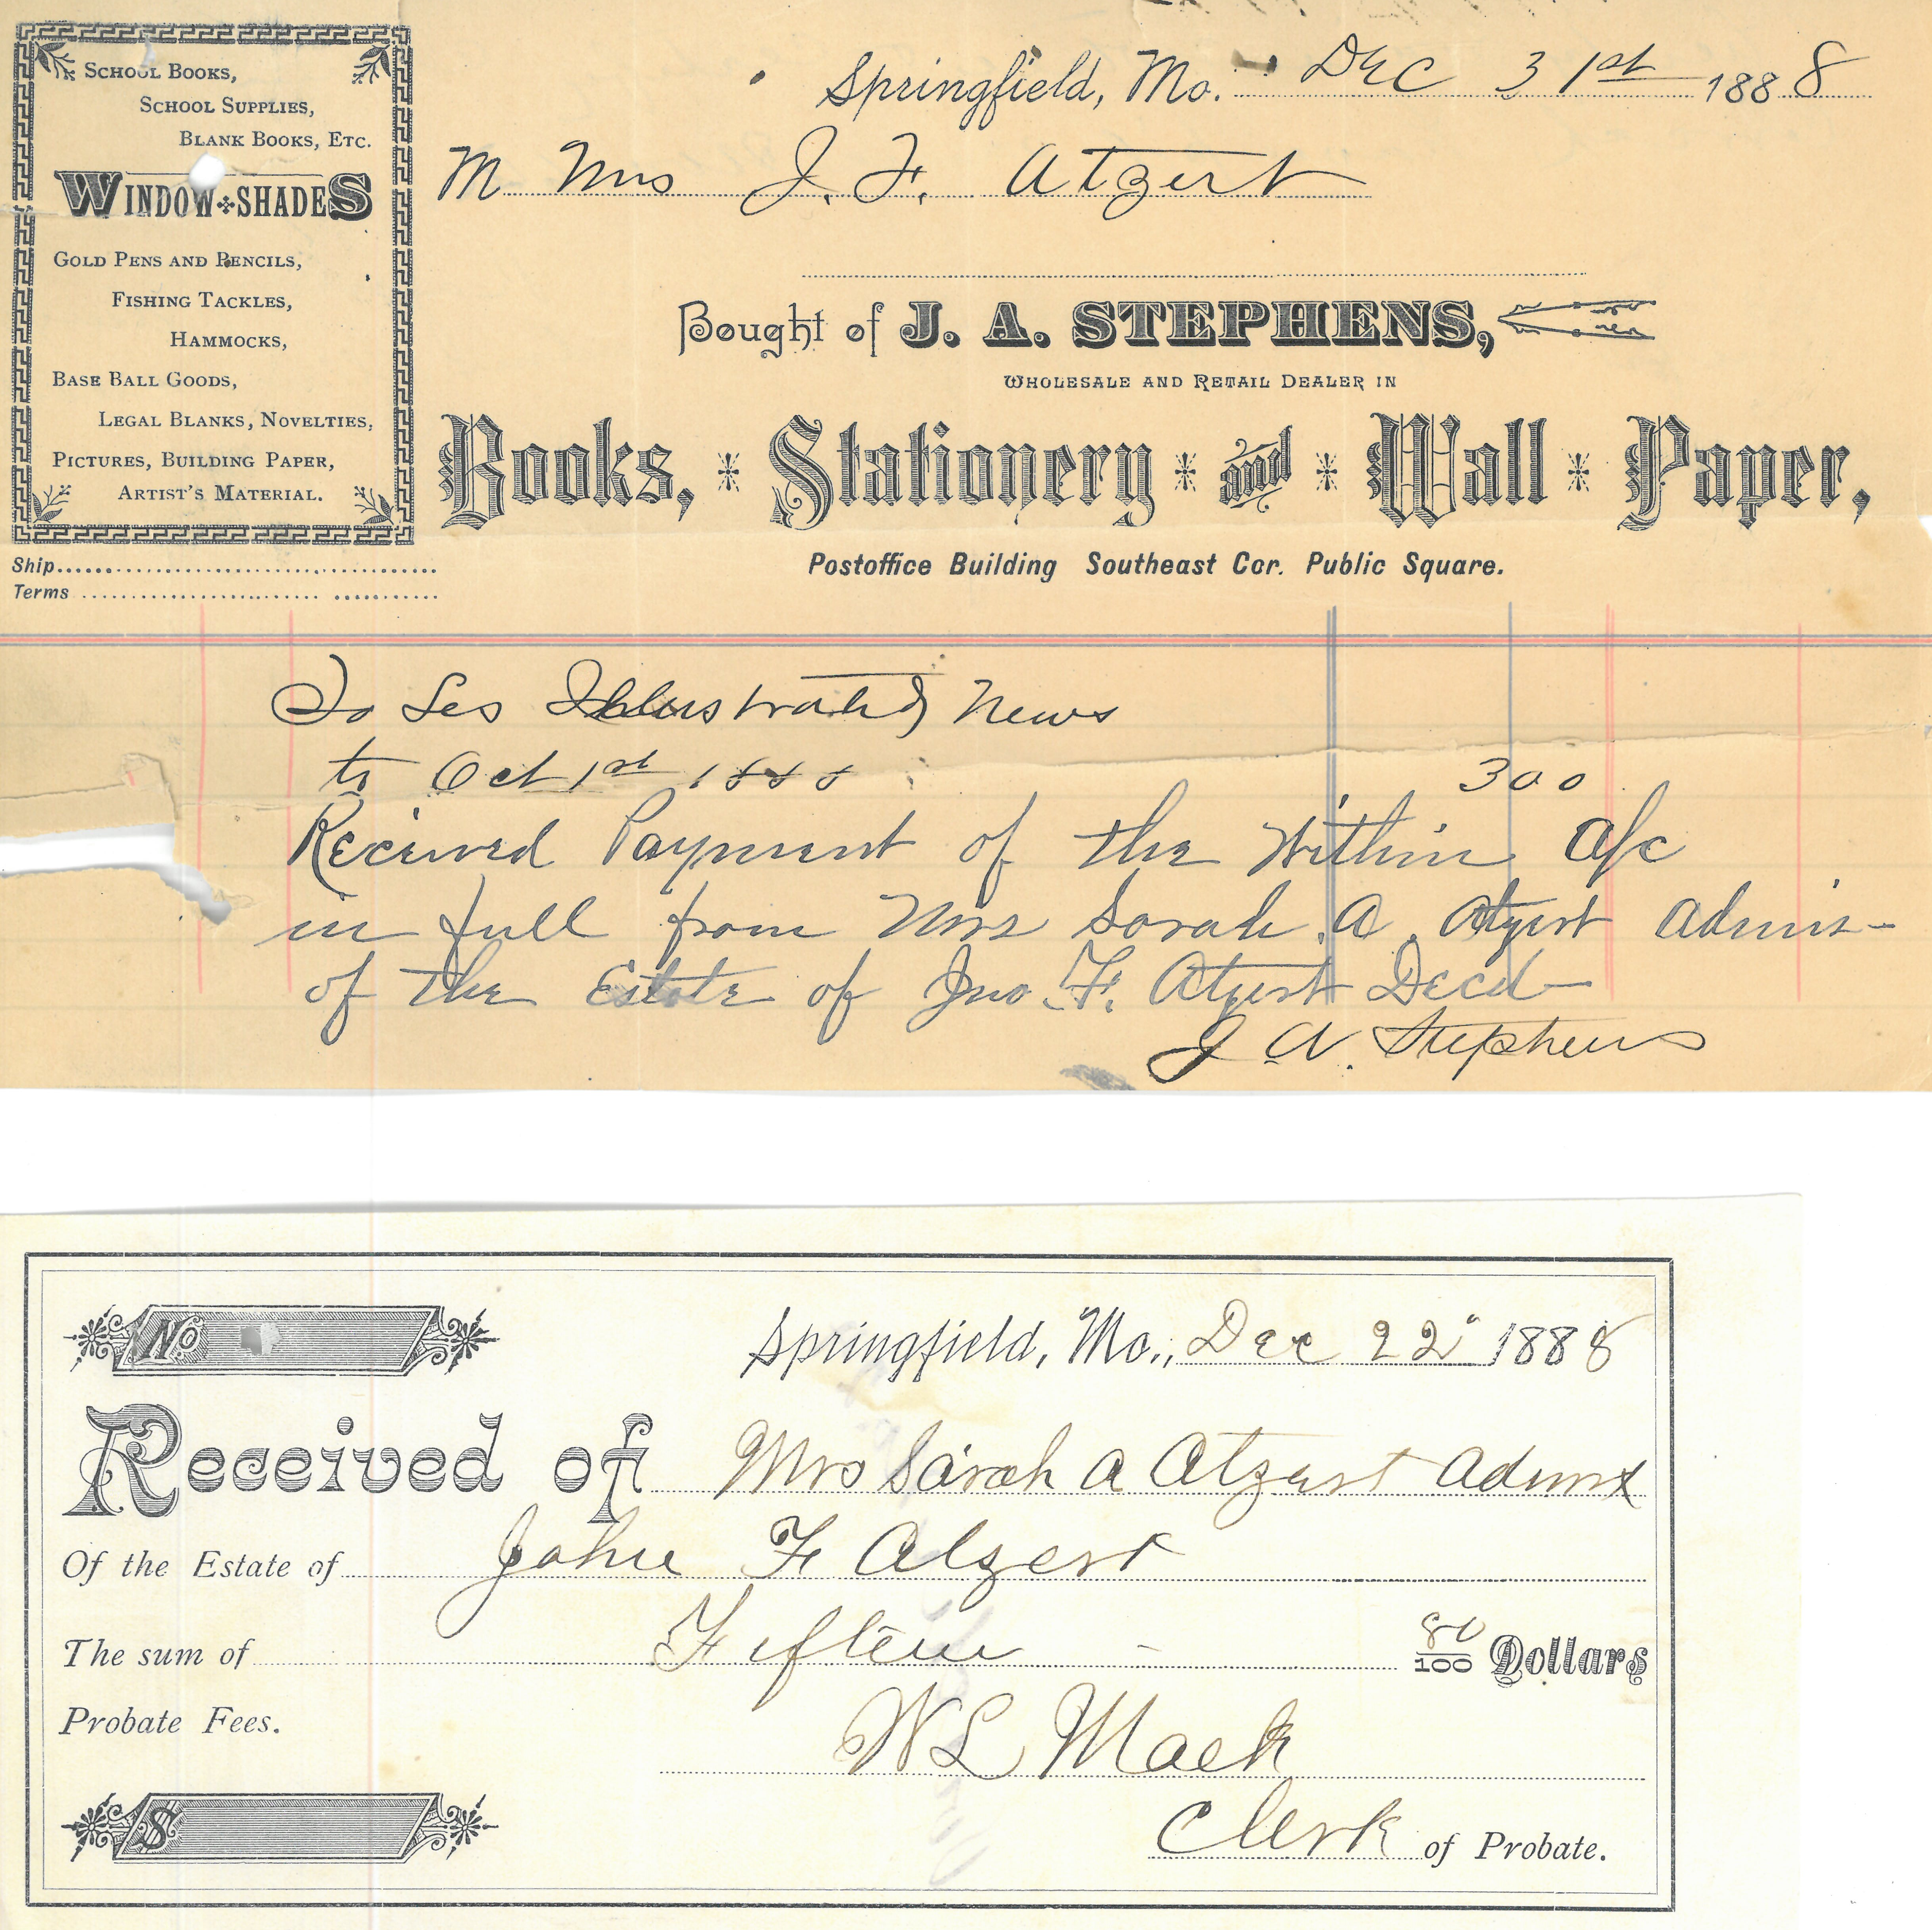 School Books,
School Supplies,
Blank Books, Etc.
Window Shades
Gold Pens and Pencils,
Fishing Tackles,
Hammocks,
Base Ball Goods,
Legal Blanks, Novelties,
Pictures, Building Paper,
Artist's Material.
Ship
Terms
Springfield, Mo. Dec 31st 1888
M Mrs J. F. Atzert
Bought of J. A. STEPHENS,
Wholesale and Retail Dealer in
Books, Stationery and Wall Paper,
Postoffice Building Southeast Cor. Public Square.
To Les Illustrated News
to Oct 1st 1888 300
Received Payment of the Within a/c
in full from Mrs Sarah A. Atzert Admx-
of the Estate of Jno. F. Atzert Decd-
J A. Stephens
No
Springfield, Mo., Dec 22" 1888
Received of Mrs Sarah A Atzert Admx
Of the Estate of John F Atzert
The sum of Fifteen - 80/100 Dollars
Probate Fees.
W L Mack
$
Clerk of Probate.